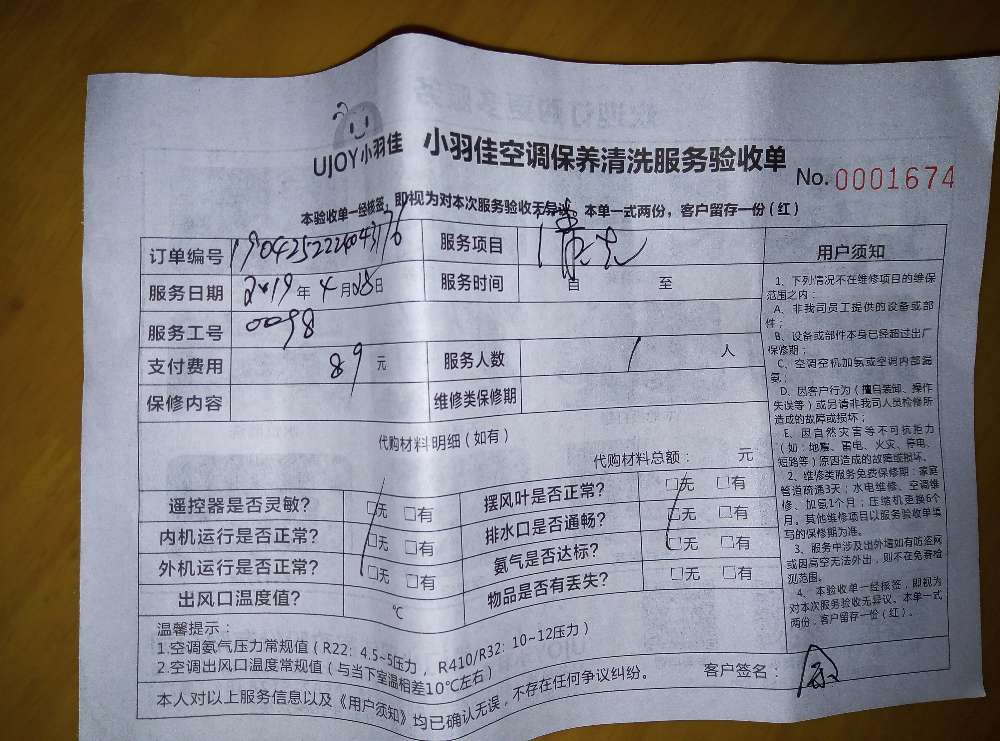 UJOY小羽佳
小羽佳空调保养清洗服务验收单
No. 0001674
本验收单一经核签，即视为对本次服务验收无异议，本单一式两份，客户留存一份（红）
订单编号 服务项目 清洗
服务日期 2019 年 4 月 28 日 服务时间 自 至
服务工号 0098
支付费用 89 元 服务人数 1 人
保修内容 维修类保修期
代购材料明细（如有）
代购材料总额： 元
遥控器是否灵敏？ □无 □有 摆风叶是否正常？ □无 □有
内机运行是否正常？ □无 □有 排水口是否通畅？ □无 □有
外机运行是否正常？ □无 □有 氨气是否达标？ □无 □有
出风口温度值？ ℃ 物品是否有丢失？ □无 □有
温馨提示：
1.空调氨气压力常规值（R22: 4.5~5压力， R410/R32: 10~12压力）
2.空调出风口温度常规值（与当下室温相差10℃左右）
本人对以上服务信息以及《用户须知》均已确认无误，不存在任何争议纠纷。 客户签名：
用户须知
1、下列情况不在维修项目的维保
范围之内：
A、非我司员工提供的设备或部
件；
B、设备或部件本身已经超过出厂
保修期；
C、空调空机加氨或空调内部漏
氨；
D、因客户行为（擅自装卸、操作
失误等）或另请非我司人员检修所
造成的故障或损坏；
E、因自然灾害等不可抗拒力
（如:地震、雷电、火灾、停电、
短路等）原因造成的故障或损坏。
2、维修类服务免费保修期：家庭
管道疏通3天；水电维修、空调维
修、加氨1个月；压缩机更换6个
月。其他维修项目以服务验收单填
写的保修期为准。
3、服务中涉及出外墙如有防盗网
或因高空无法外出，则不在免费检
测范围。
4、本验收单一经核签，即视为
对本次服务验收无异议。本单一式
两份，客户留存一份（红）。